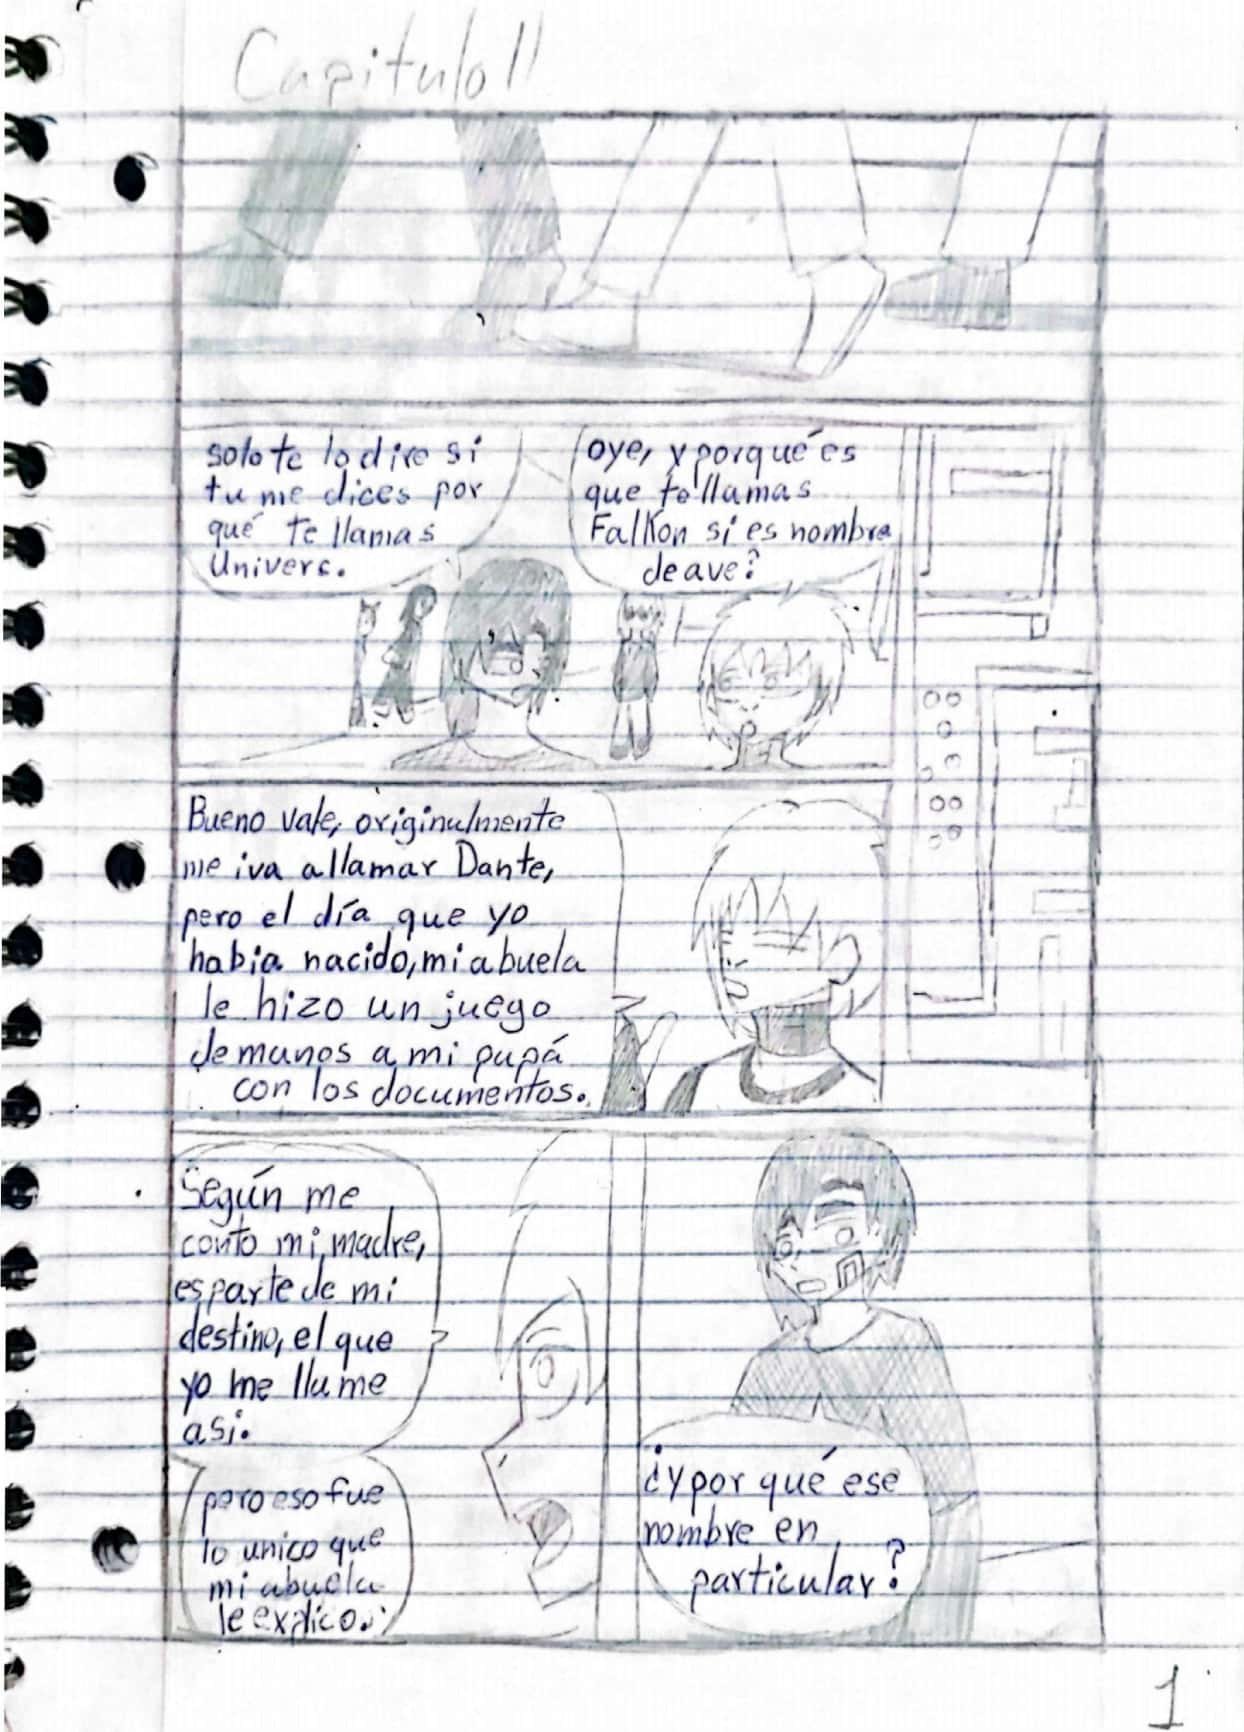 Capitulo 11
oye, y porqué es
que te llamas
Falkon si es nombre
de ave?
solo te lo dire si
tu me dices por
qué te llamas
Univers.
Bueno vale, originalmente
me iva a llamar Dante,
pero el día que yo
habia nacido, mi abuela
le hizo un juego
de manos a mi papá
con los documentos.
¿y por qué ese
nombre en
particular?
Según me
conto mi madre,
es parte de mi
destino, el que
yo me llame
asi.
pero eso fue
lo unico que
mi abuela
le explico.
1